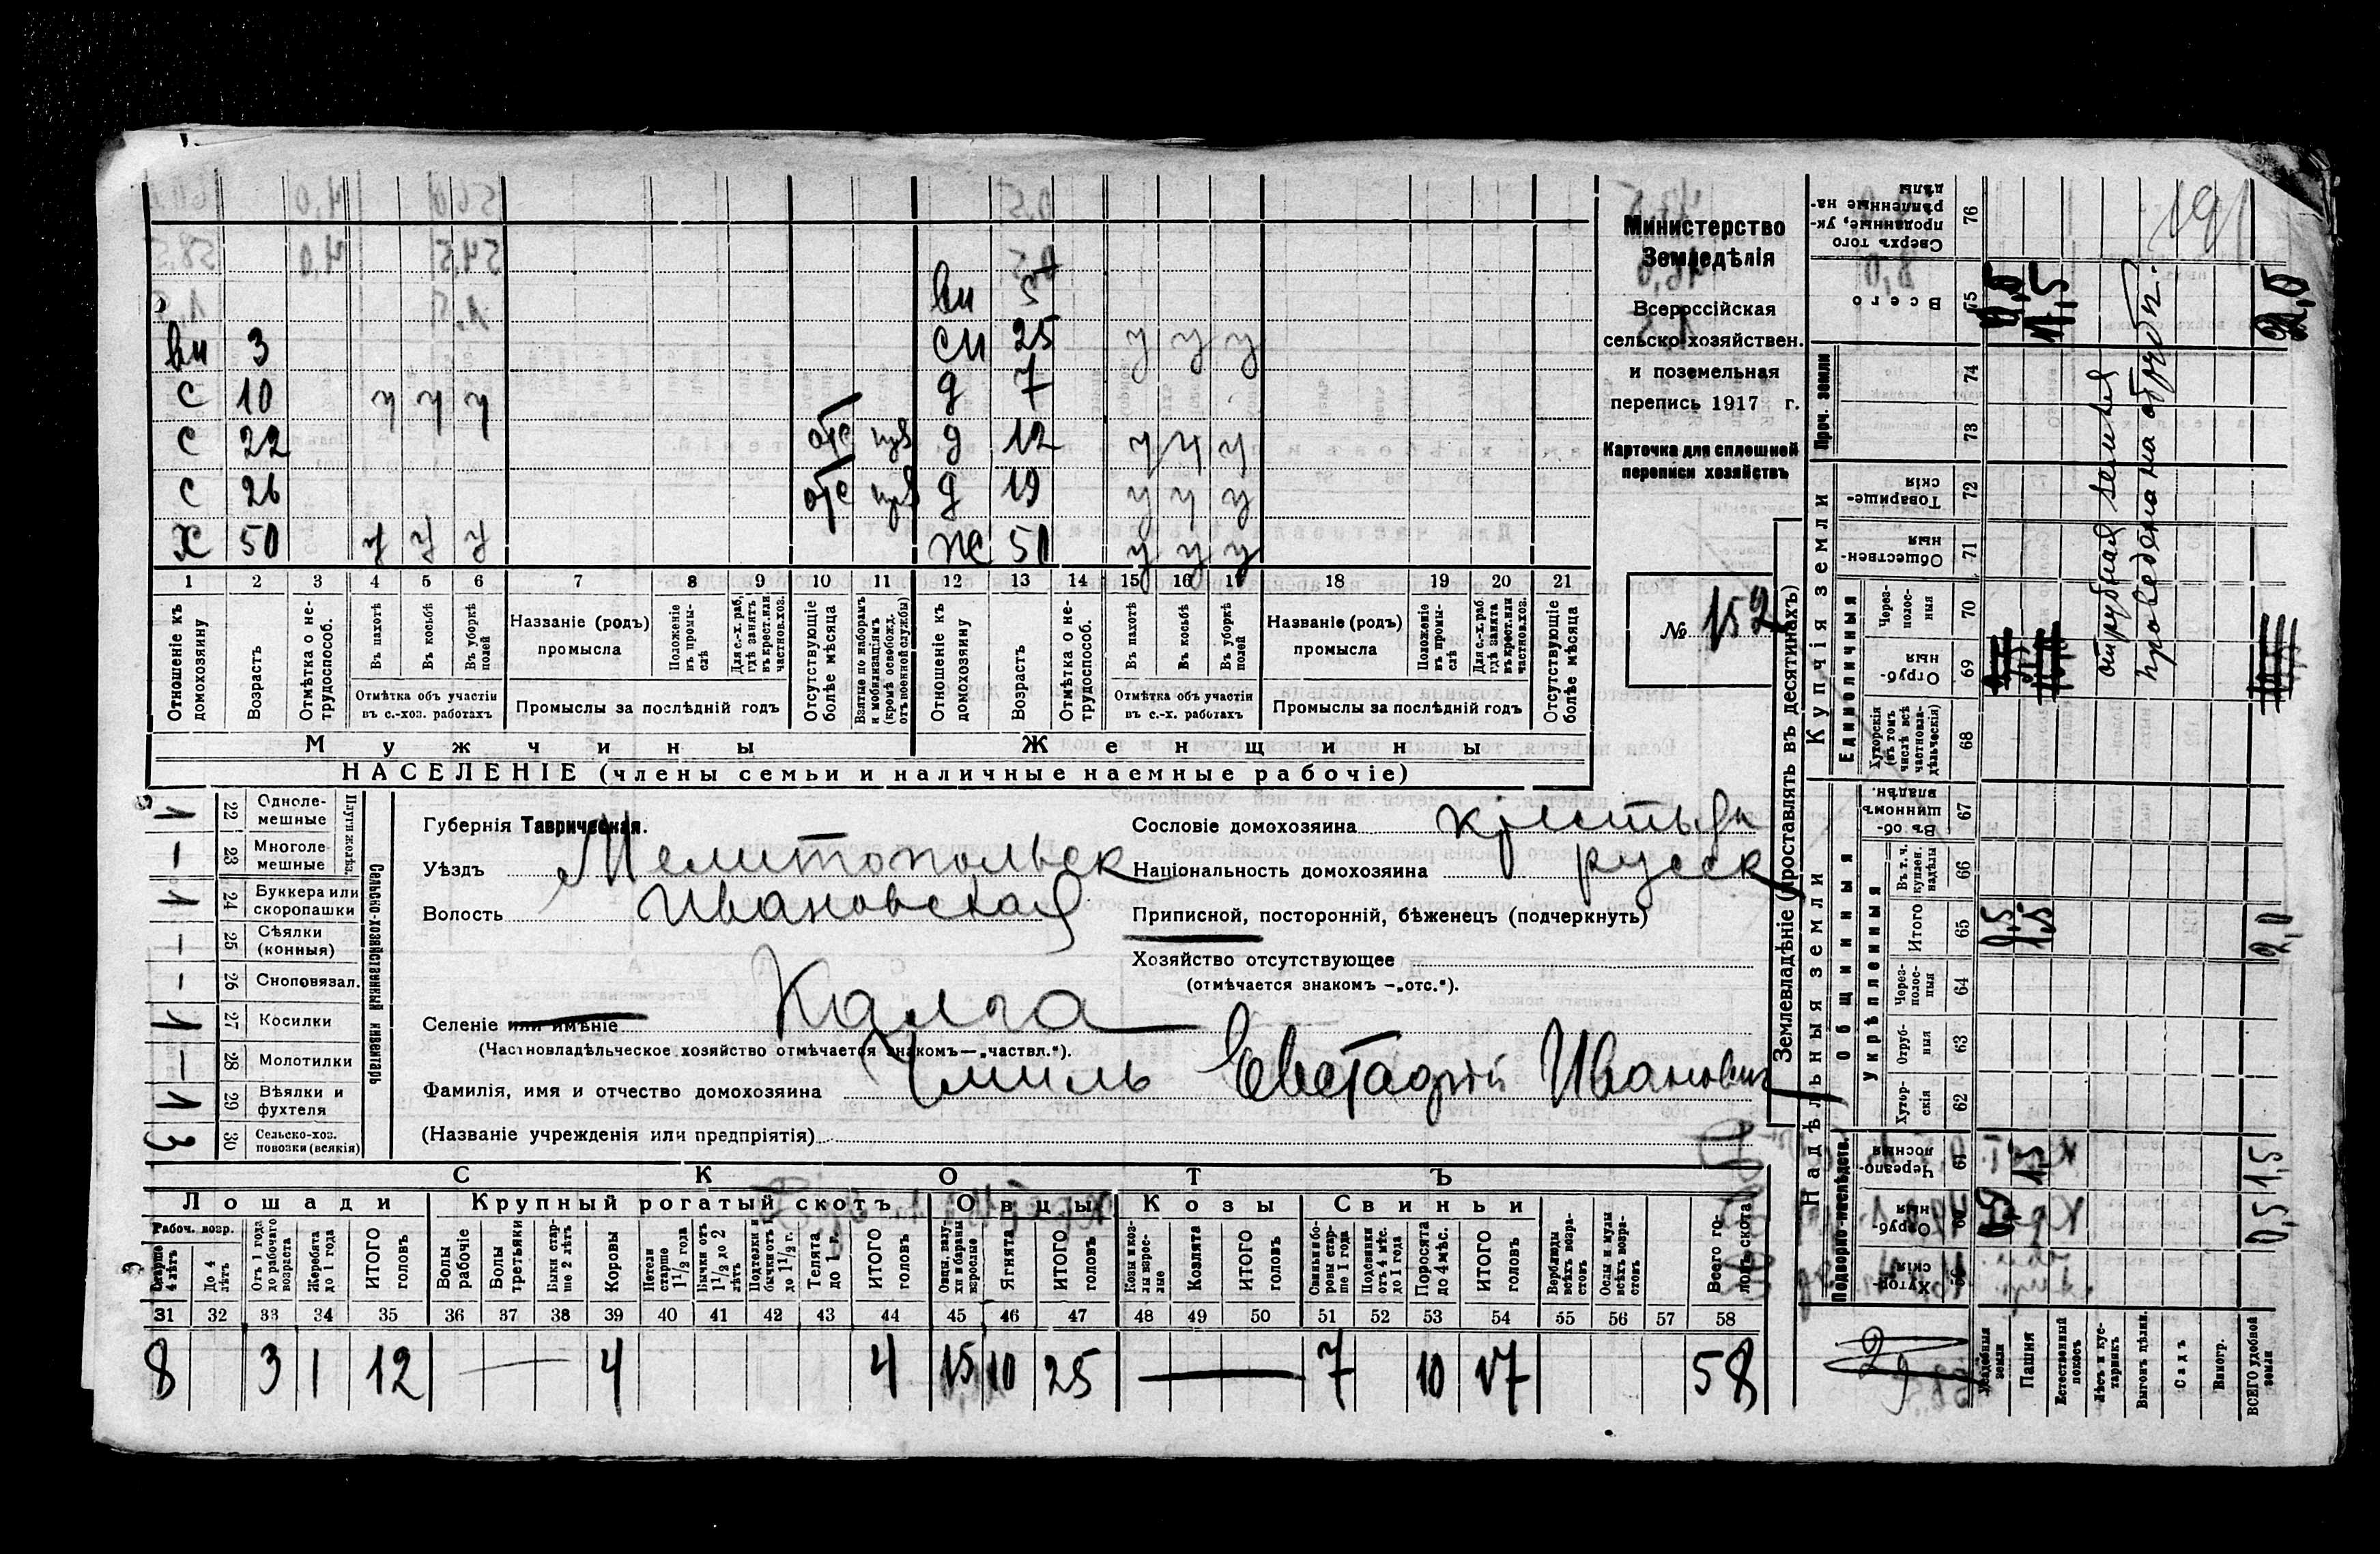 вн 5
вн 3 сн 25 у у у
с 10 у у у д 7
с 22 отс д 12 у у у
с 26 отс д 19 у у у
х 50 у у у ж 50 у у у
1 2 3 4 5 6 7 8 9 10 11 12 13 14 15 16 17 18 19 20 21
Отношеніе къ домохозяину
Возрастъ
Отмѣтка о не-трудоспособ.
Въ пахотѣ
Въ косьбѣ
Въ уборкѣ полей
Отмѣтка объ участіи въ с.-хоз. работахъ
Названіе (родъ) промысла
Положеніе въ промы-слѣ
Для с.-х. раб. гдѣ занятъ въ крест. или частнов. хоз.
Промыслы за послѣдній годъ
Отсутствующіе болѣе мѣсяца
Взятые по наборамъ и мобилизаціямъ (кромѣ освобожд. отъ военной службы)
Отношеніе къ домохозяину
Возрастъ
Отмѣтка о не-трудоспособ.
Въ пахотѣ
Въ косьбѣ
Въ уборкѣ полей
Отмѣтка объ участіи въ с.-х. работахъ
Названіе (родъ) промысла
Положеніе въ промы-слѣ
Для с.-х. раб. гдѣ занята въ крест. или частнов. хоз.
Промыслы за послѣдній годъ
Отсутствующіе болѣе мѣсяца
Мужчины Женщины
НАСЕЛЕНІЕ (члены семьи и наличные наемные рабочіе)
Министерство
Земледѣлія
Всероссійская
сельско-хозяйствен.
и поземельная
перепись 1917 г.
Карточка для сплошной
переписи хозяйствъ
№ 152
Сельско-хозяйственный инвентарь
Плуги желѣз.
1 22 Одноле-мешные
— 23 Многоле-мешные
1 24 Буккера или скоропашки
— 25 Сѣялки (конныя)
— 26 Сноповязал.
1 27 Косилки
— 28 Молотилки
1 29 Вѣялки и фухтеля
3 30 Сельско-хоз. повозки (всякія)
Губернія Таврическая.
Уѣздъ Мелитопольск
Волость Ивановская
Селеніе или имѣніе Калга
(Частновладѣльческое хозяйство отмѣчается знакомъ—„частвл.“).
Фамилія, имя и отчество домохозяина Чмиль Евстафій Иванович
(Названіе учрежденія или предпріятія)
Сословіе домохозяина крестьян
Національность домохозяина русск
Приписной, посторонній, бѣженецъ (подчеркнуть)
Хозяйство отсутствующее
(отмѣчается знакомъ —„отс.“).
СКОТЪ
Лошади Крупный рогатый скотъ Овцы Козы Свиньи
Рабоч. возр.
Старше 4 лѣтъ
До 4 лѣтъ
Отъ 1 года до рабочаго возраста
Жеребята до 1 года
ИТОГО головъ
Волы рабочіе
Волы третьяки
Быки стар-ше 2 лѣтъ
Коровы
Нетели старше 1 1/2 года
Бычки отъ 1 1/2 до 2 лѣтъ
Подтелки и бычки отъ 1 до 1 1/2 г.
Телята до 1 г.
ИТОГО головъ
Овцы, валу-хи и бараны взрослые
Ягнята
ИТОГО головъ
Козы и коз-лы взрос-лые
Козлята
ИТОГО головъ
Свиньи и бо-ровы стар-ше 1 года
Подсвинки отъ 4 мѣс. до 1 года
Поросята до 4 мѣс.
ИТОГО головъ
Верблюды всѣхъ возра-стовъ
Ослы и мулы всѣхъ возра-стовъ
Всего го-ловъ скота
31 32 33 34 35 36 37 38 39 40 41 42 43 44 45 46 47 48 49 50 51 52 53 54 55 56 57 58
8 3 1 12 — 4 4 15 10 25 — 7 10 17 58
Землевладѣніе (проставлять въ десятинахъ)
Надѣльныя земли
Купчія земли
Проч. земли
Подворно-наслѣдств.
Общинныя
Укрѣпленныя
Единоличныя
Хутор-скія
60 Отруб-ныя
61 Черезпо-лосныя
62 Хутор-скія
63 Отруб-ныя
64 Через-полос-ныя
65 Итого
66 Въ т. ч. купчен. надѣлы
67 Въ об-щинномъ владѣн.
68 Хуторскія (въ томъ числѣ всѣ частновла-дѣльческія)
69 Отруб-ныя
70 Через-полос-ныя
71 Обществен-ныя
72 Товарище-скія
73
74
75 Всего
76 Сверхъ того проданные, ук-рѣпленные на-дѣлы
Усадебныя земли
Пашня
Естественный покосъ
Лѣсъ и кус-тарникъ
Выгонъ цѣлин.
Садъ
Виногр.
ВСЕГО удобной земли
0,5 1,5
0,5 1,5 2,0
1,5 2,0
отрубная земля
проведена на оборот.
191
29